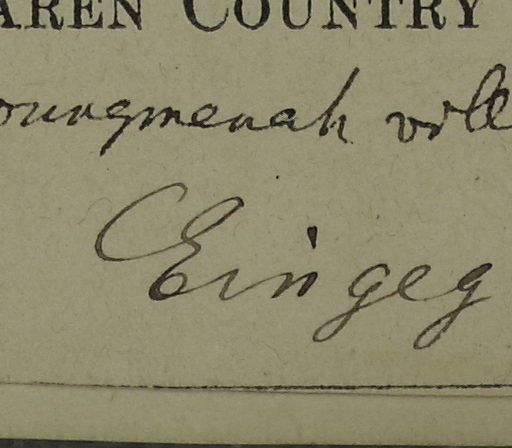 AREN COUNTRY
oungmenah vill
Eingeg